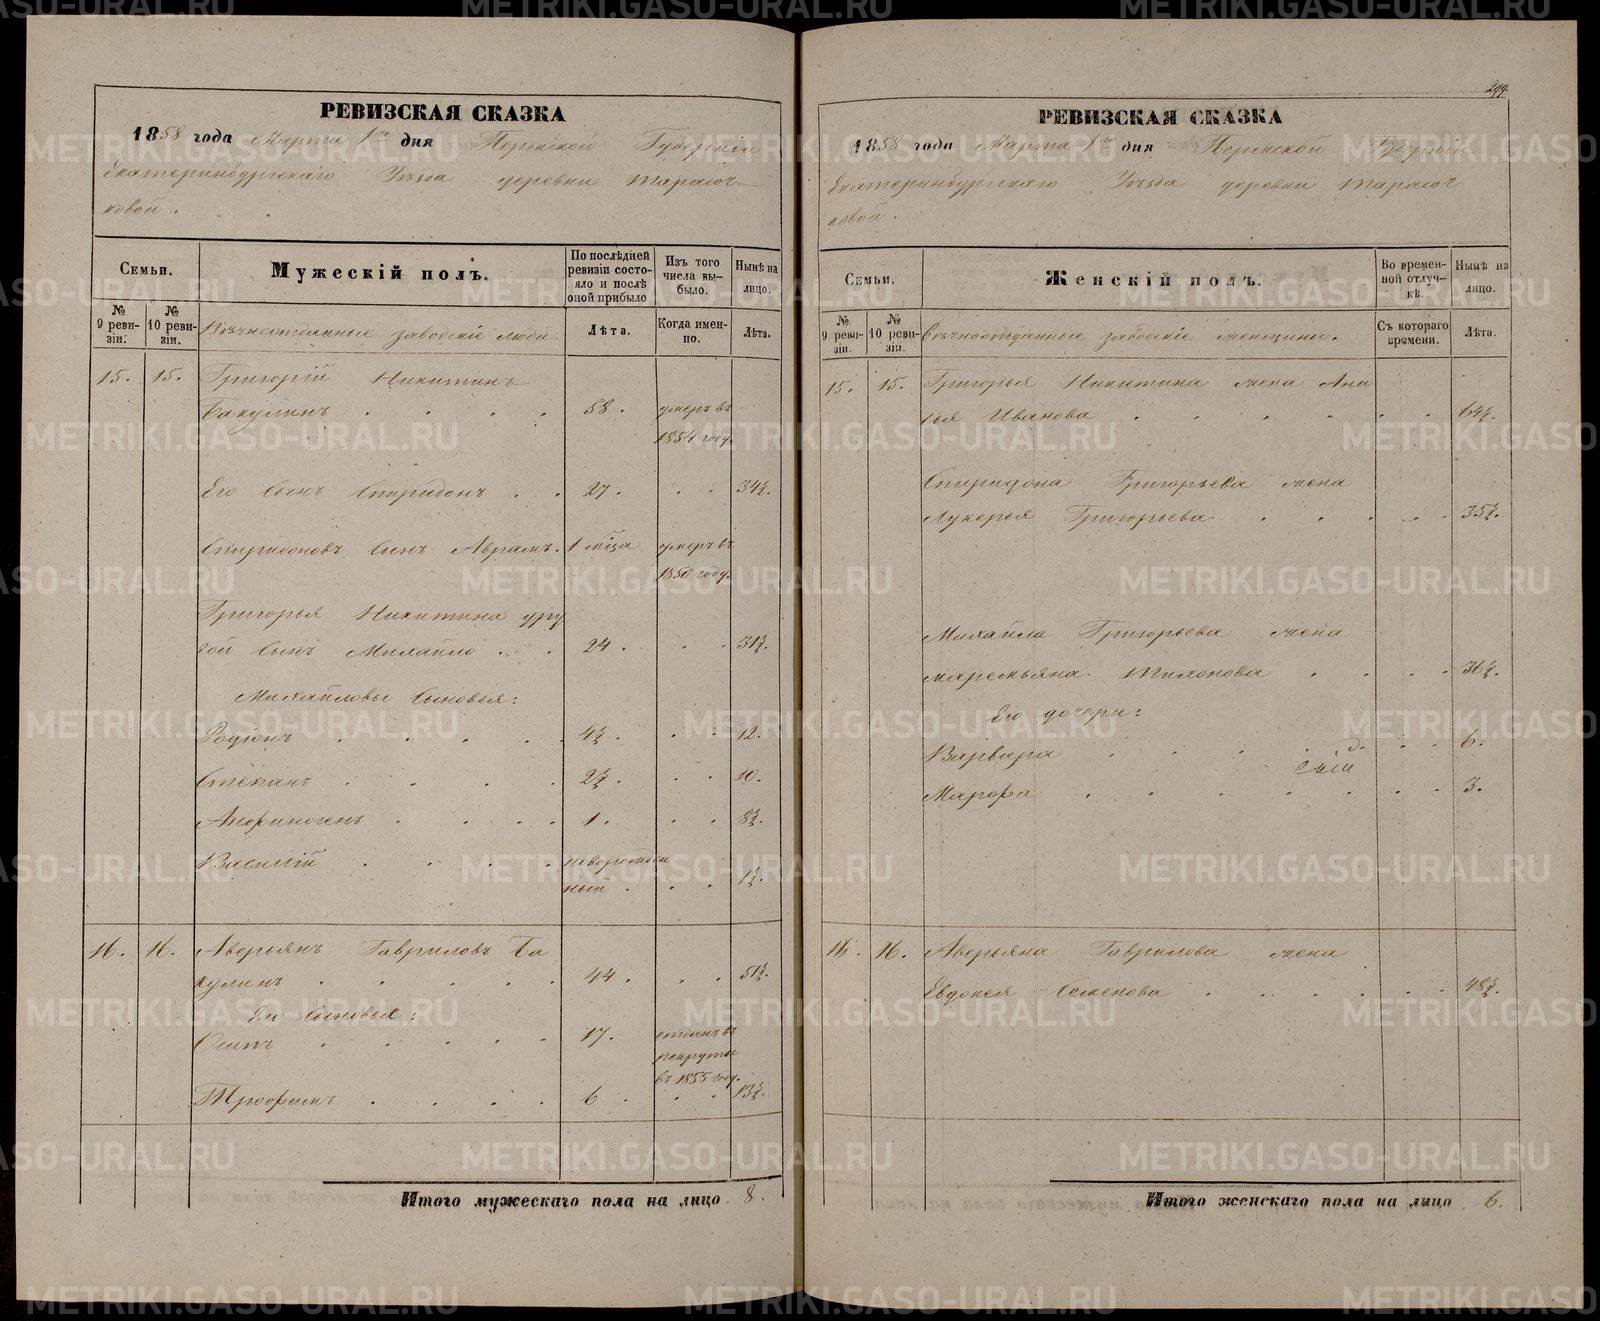 РЕВИЗСКАЯ СКАЗКА
1858 года Марта 1го дня Пермской Губерніи
Екатеринбургскаго Уѣзда деревни Тарасов-
ковой.
Семьи.
Мужескій полъ.
По послѣдней ревизіи состояло и послѣ оной прибыло
Изъ того числа выбыло.
Нынѣ на лицо.
№ 9 ревизіи.
№ 10 ревизіи.
Вѣчноотданные заводскіе люди
Лѣта.
Когда именно.
Лѣта.
15. 15. Григорій Никитинъ
Бакулинъ . . . . 58. умеръ въ
1854 году.
Его сынъ Спиридонъ . . 27. . . 34½.
Спиридоновъ сынъ Аврамъ. 1 мѣца умеръ въ
1850 году.
Григорья Никитина дру
гой сынъ Михайло . . 24. . . 31½.
Михайловы сыновья:
Родіонъ . . . . . 4½. . . 12.
Степанъ . . . . 2½. . . 10.
Анфиногенъ . . . . 1. . . 8½.
Василій . . . . новорожден
ный . . . 1½.
16. 16. Аверьянъ Гавриловъ Ба
кулинъ . . . . . 44. . . 51½.
Его сыновья:
Осипъ . . . . . 17. отданъ въ
рекруты
въ 1855 году.
Трофимъ . . . . 6 . . . 13½.
Итого мужескаго пола на лицо 8.
299.
РЕВИЗСКАЯ СКАЗКА
1858 года Марта 1го дня Пермской Губерніи
Екатеринбургскаго Уѣзда деревни Тарасов
ковой.
Семьи.
Женскій полъ.
Во временной отлучкѣ.
Нынѣ на лицо.
№ 9 ревизіи.
№ 10 ревизіи.
Вѣчноотданные заводскіе женщины.
Съ котораго времени.
Лѣта.
15. 15. Григорья Никитина жена Ани
сья Иванова . . . . . . 64½.
Спиридона Григорьева жена
Лукерья Григорьева . . . . . 35½.
Михайла Григорьева жена
Маремьяна Тихонова . . . . 36½.
Его дочери:
Варвара . . . . . . . 6.
Марфа . . . . . . . . 3.
16. 16. Аверьяна Гаврилова жена
Евдокея Семенова . . . . . . . 48½.
Итого женскаго пола на лицо 6.
METRIKI.GASO-URAL.RU